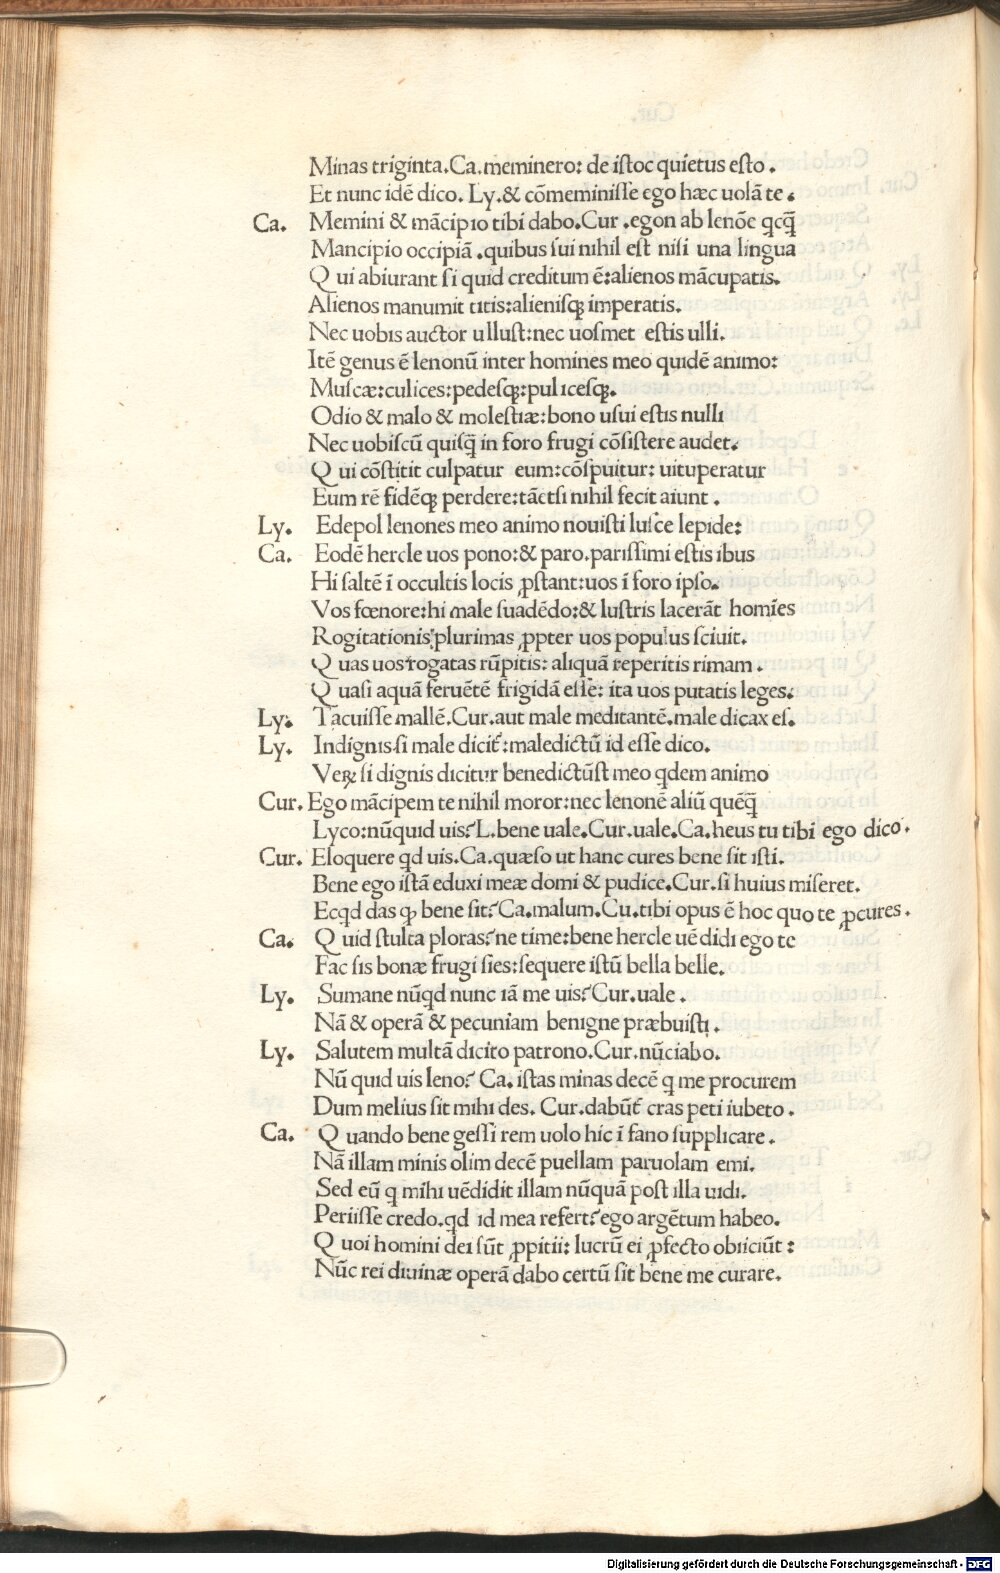 Minas triginta. Ca. meminero: de istoc quietus esto.
Et nunc idē dico. Ly. & cōmeminisse ego hæc uolā te.
Ca. Memini & mācipio tibi dabo. Cur. egon ab lenōe qcq̄
Mancipio occipiā. quibus sui nihil est nisi una lingua
Qui abiurant si quid creditum ē: alienos mācupatis.
Alienos manumit titis: alienisqꝫ imperatis.
Nec uobis auctor ullust: nec uosmet estis ulli.
Itē genus ē lenonū inter homines meo quidē animo:
Muscæ: culices: pedesqꝫ: pulicesqꝫ.
Odio & malo & molestiæ: bono usui estis nulli
Nec uobiscū quisq̄ in foro frugi cōsistere audet.
Qui cōstitit culpatur eum: cōspuitur: uituperatur
Eum rē fidēqꝫ perdere: tāetsi nihil fecit aiunt.
Ly. Edepol lenones meo animo nouisti lusce lepide:
Ca. Eodē hercle uos pono: & paro. parissimi estis ibus
Hi saltē ī occultis locis ꝓstant: uos ī foro ipso.
Vos fœnore: hi male suadēdo: & lustris lacerāt homīes
Rogitationis plurimas ꝓpter uos populus sciuit.
Quas uos rogatas rūpitis: aliquā reperitis rimam.
Quasi aquā feruētē frigidā esse: ita uos putatis leges.
Ly. Tacuisse mallē. Cur. aut male meditantē. male dicax es.
Ly. Indignis si male dicit̄: maledictū id esse dico.
Veꝝ si dignis dicitur benedictūst meo qdem animo
Cur. Ego mācipem te nihil moror: nec lenonē aliū quēq̄
Lyco: nūquid uis? L. bene uale. Cur. uale. Ca. heus tu tibi ego dico.
Cur. Eloquere qd uis. Ca. quæso ut hanc cures bene sit isti.
Bene ego istā eduxi meæ domi & pudice. Cur. si huius miseret.
Ecqd das qꝫ bene sit? Ca. malum. Cu. tibi opus ē hoc quo te ꝓcures.
Ca. Quid stulta ploras? ne time: bene hercle uēdidi ego te
Fac sis bonæ frugi sies: sequere istū bella belle.
Ly. Sumane nūqd nunc iā me uis? Cur. uale.
Nā & operā & pecuniam benigne præbuisti.
Ly. Salutem multā dicito patrono. Cur. nūciabo.
Nū quid uis leno? Ca. istas minas decē q me procurem
Dum melius sit mihi des. Cur. dabūt̄ cras peti iubeto.
Ca. Quando bene gessi rem uolo hic ī fano supplicare.
Nā illam minis olim decē puellam paruolam emi.
Sed eū q mihi uēdidit illam nūquā post illa uidi.
Periisse credo. qd id mea refert? ego argētum habeo.
Quoi homini dei sūt ꝓpitii: lucrū ei ꝓfecto obiiciūt:
Nūc rei diuinæ operā dabo certū sit bene me curare.
Digitalisierung gefördert durch die Deutsche Forschungsgemeinschaft - DFG